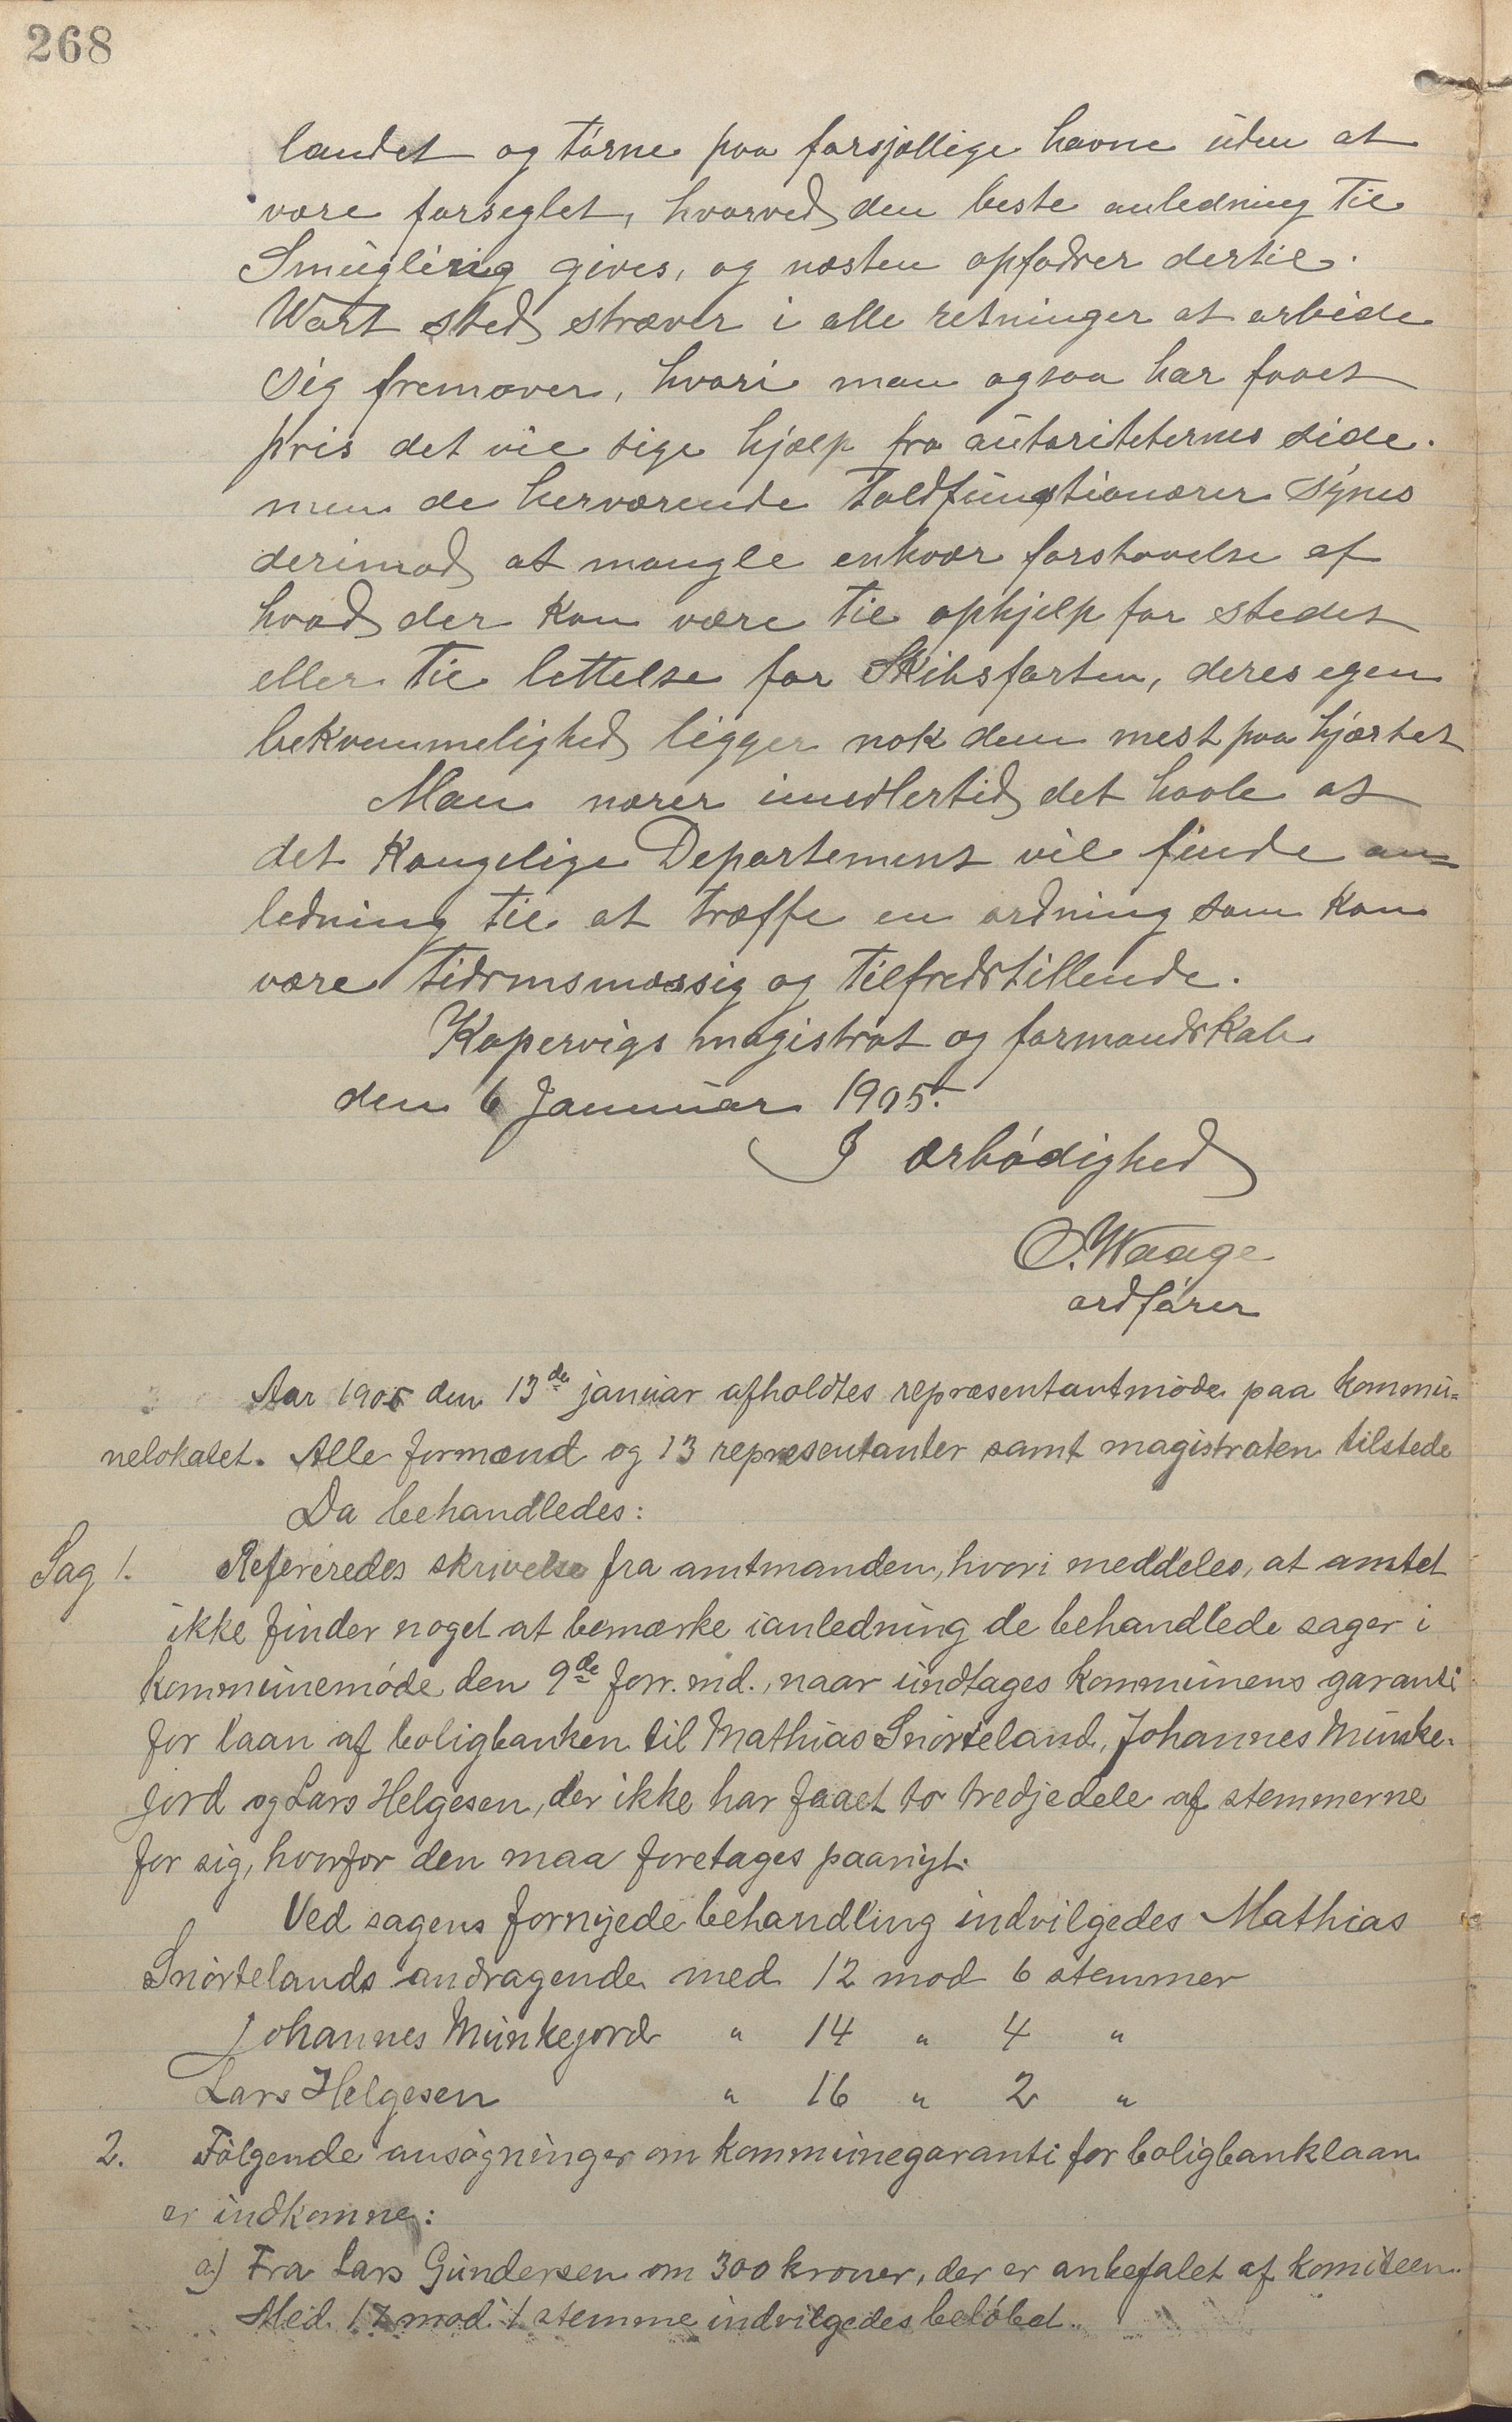 268
landet og tørne paa forsjællige havne uden at
være forseglet, hvorved den beste anledning til
Smugling gives, og næsten opfodrer dertil.
Wort sted stræver i alle retninger at arbeide
sig fremover, hvori man ogsaa har faaet
pris det vil sige hjælp fra autoriteternes side.
men de herværende toldfungtionærer synes
derimod at mangle enhver forstaaelse af
hvad der kan være til ophjelp for stedet
eller til lettelse for Skibsfarten, deres egen
bekvemmelighed ligger nok dem mest paa hjærtet
Man nærer imedlertid det haab at
det Kongelige Departement vil finde an=
ledning til at træffe en ordning som kan
være tidsmsmæssig og tilfredstillende.
Kopervigs magistrat og formandskab
den 6 Januar 1905.
I ærbødighed
O. Waage
ordfører
Aar 1905 den 13de januar afholdtes repræsentantmøde paa kommu=
nelokalet. Alle formænd og 13 repræsentanter samt magistraten tilstede
Da behandledes:
Sag 1. Refereredes skrivelse fra amtmanden, hvori meddeles, at amtet
ikke finder noget at bemærke ianledning de behandlede sager i
kommunemøde den 9de forr. md., naar undtages kommunens garanti
for laan af boligbanken til Mathias Snørteland, Johannes Munke-
jord og Lars Helgesen, der ikke har faaet to tredjedele af stemmerne
for sig, hvorfor den maa foretages paanyt.
Ved sagens fornyede behandling indvilgedes Mathias
Snørtelands andragende med 12 mod 6 stemmer
Johannes Munkejord " 14 " 4 "
Lars Helgesen " 16 " 2 "
2. Følgende ansøgninger om kommunegaranti for boligbanklaan
er indkomne:
a) Fra Lars Gundersen om 300 kroner, der er anbefalet af komiteen.
Med 17 mod 1 stemme indvilgedes beløbet.